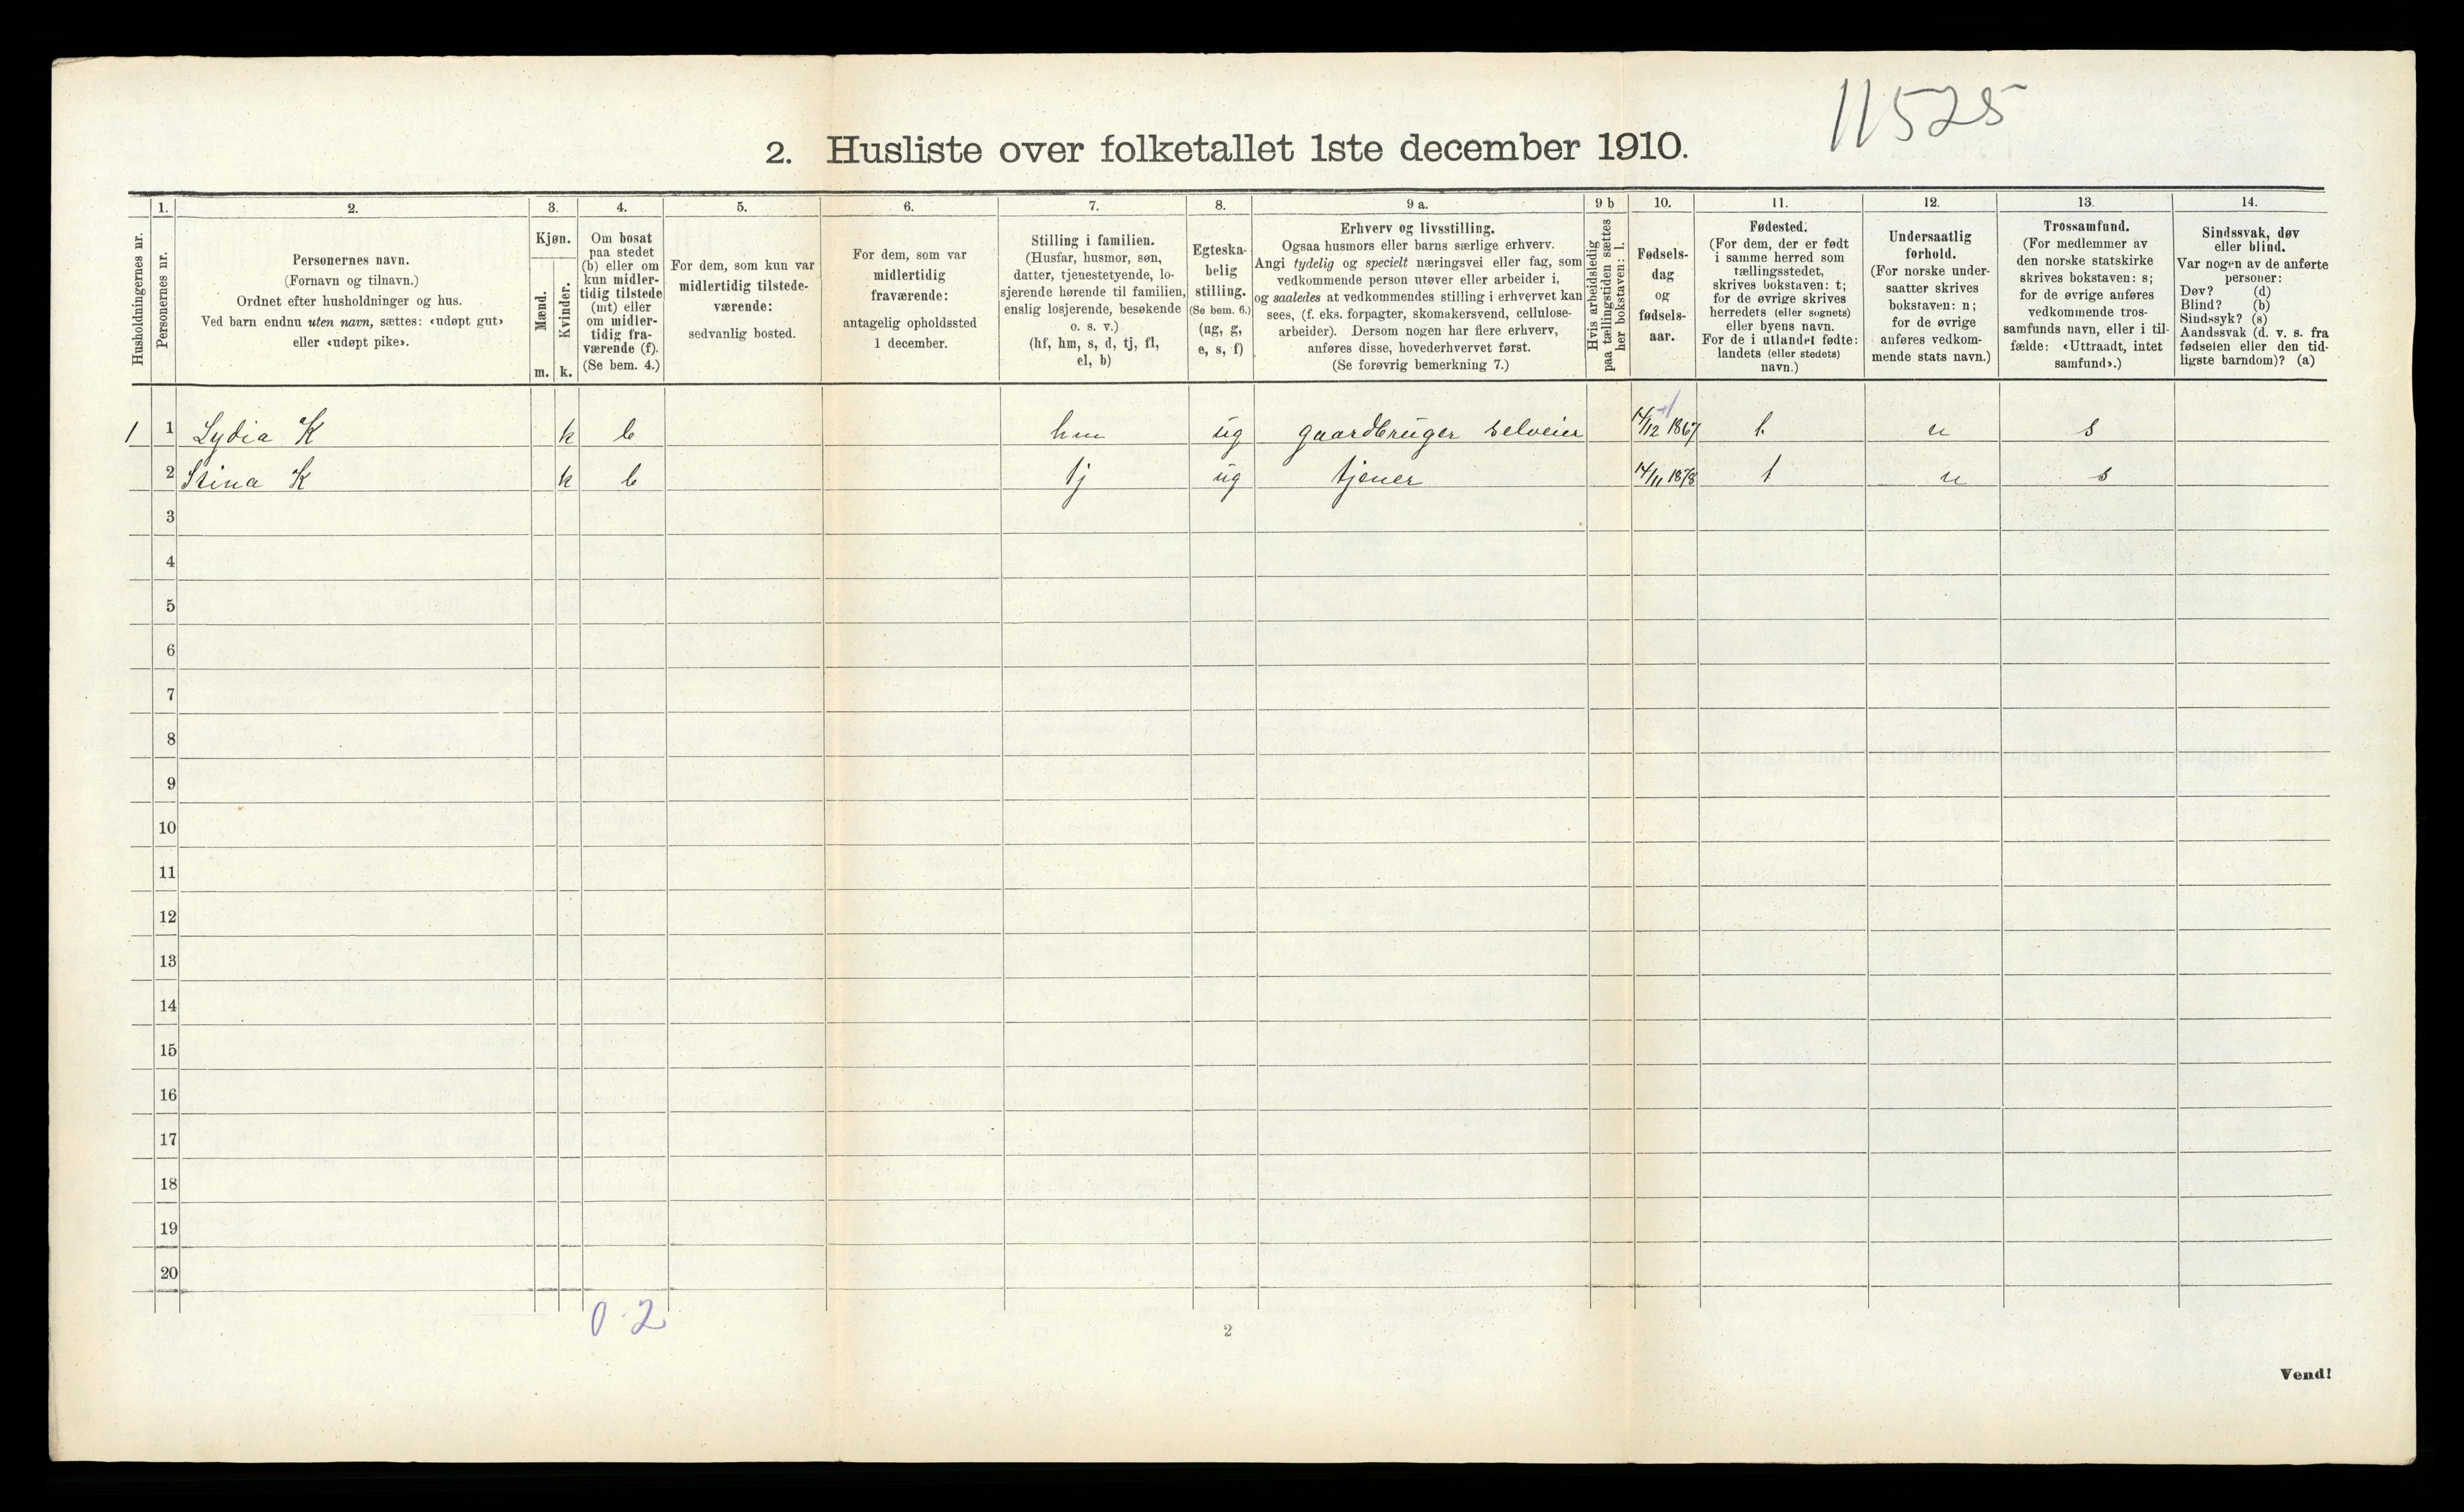 11525
2. Husliste over folketallet 1ste december 1910.
Husholdningernes nr.
1.
Personernes nr.
2.
Personernes navn.
(Fornavn og tilnavn.)
Ordnet efter husholdninger og hus.
Ved barn endnu uten navn, sættes: «udøpt gut»
eller «udøpt pike».
3.
Kjøn.
Mænd.
m.
Kvinder.
k.
4.
Om bosat
paa stedet
(b) eller om
kun midler-
tidig tilstede
(mt) eller
om midler-
tidig fra-
værende (f).
(Se bem. 4.)
5.
For dem, som kun var
midlertidig tilstede-
værende:
sedvanlig bosted.
6.
For dem, som var
midlertidig
fraværende:
antagelig opholdssted
1 december.
7.
Stilling i familien.
(Husfar, husmor, søn,
datter, tjenestetyende, lo-
sjerende hørende til familien,
enslig losjerende, besøkende
o. s. v.)
(hf, hm, s, d, tj, fl,
el, b)
8.
Egteska-
belig
stilling.
(Se bem. 6.)
(ug, g,
e, s, f)
9 a.
Erhverv og livsstilling.
Ogsaa husmors eller barns særlige erhverv.
Angi tydelig og specielt næringsvei eller fag, som
vedkommende person utøver eller arbeider i,
og saaledes at vedkommendes stilling i erhvervet kan
sees, (f. eks. forpagter, skomakersvend, cellulose-
arbeider). Dersom nogen har flere erhverv,
anføres disse, hovederhvervet først.
(Se forøvrig bemerkning 7.)
9 b
Hvis arbeidsledig
paa tællingstiden sættes
her bokstaven: l.
10.
Fødsels-
dag
og
fødsels-
aar.
11.
Fødested.
(For dem, der er født
i samme herred som
tællingsstedet,
skrives bokstaven: t;
for de øvrige skrives
herredets (eller sognets)
eller byens navn.
For de i utlandet fødte:
landets (eller stedets)
navn.)
12.
Undersaatlig
forhold.
(For norske under-
saatter skrives
bokstaven: n;
for de øvrige
anføres vedkom-
mende stats navn.)
13.
Trossamfund.
(For medlemmer av
den norske statskirke
skrives bokstaven: s;
for de øvrige anføres
vedkommende tros-
samfunds navn, eller i til-
fælde: «Uttraadt, intet
samfund».)
14.
Sindssvak, døv
eller blind.
Var nogen av de anførte
personer:
Døv? (d)
Blind? (b)
Sindssyk? (s)
Aandssvak (d. v. s. fra
fødselen eller den tid-
ligste barndom)? (a)
1 1 Lydia K k b hm ug gaardbruger selveier 14/12 1867 t n s
2 Stina K k b tj ug tjener 14/11 1878 t n s
3
4
5
6
7
8
9
10
11
12
13
14
15
16
17
18
19
20
0 2
2
Vend!